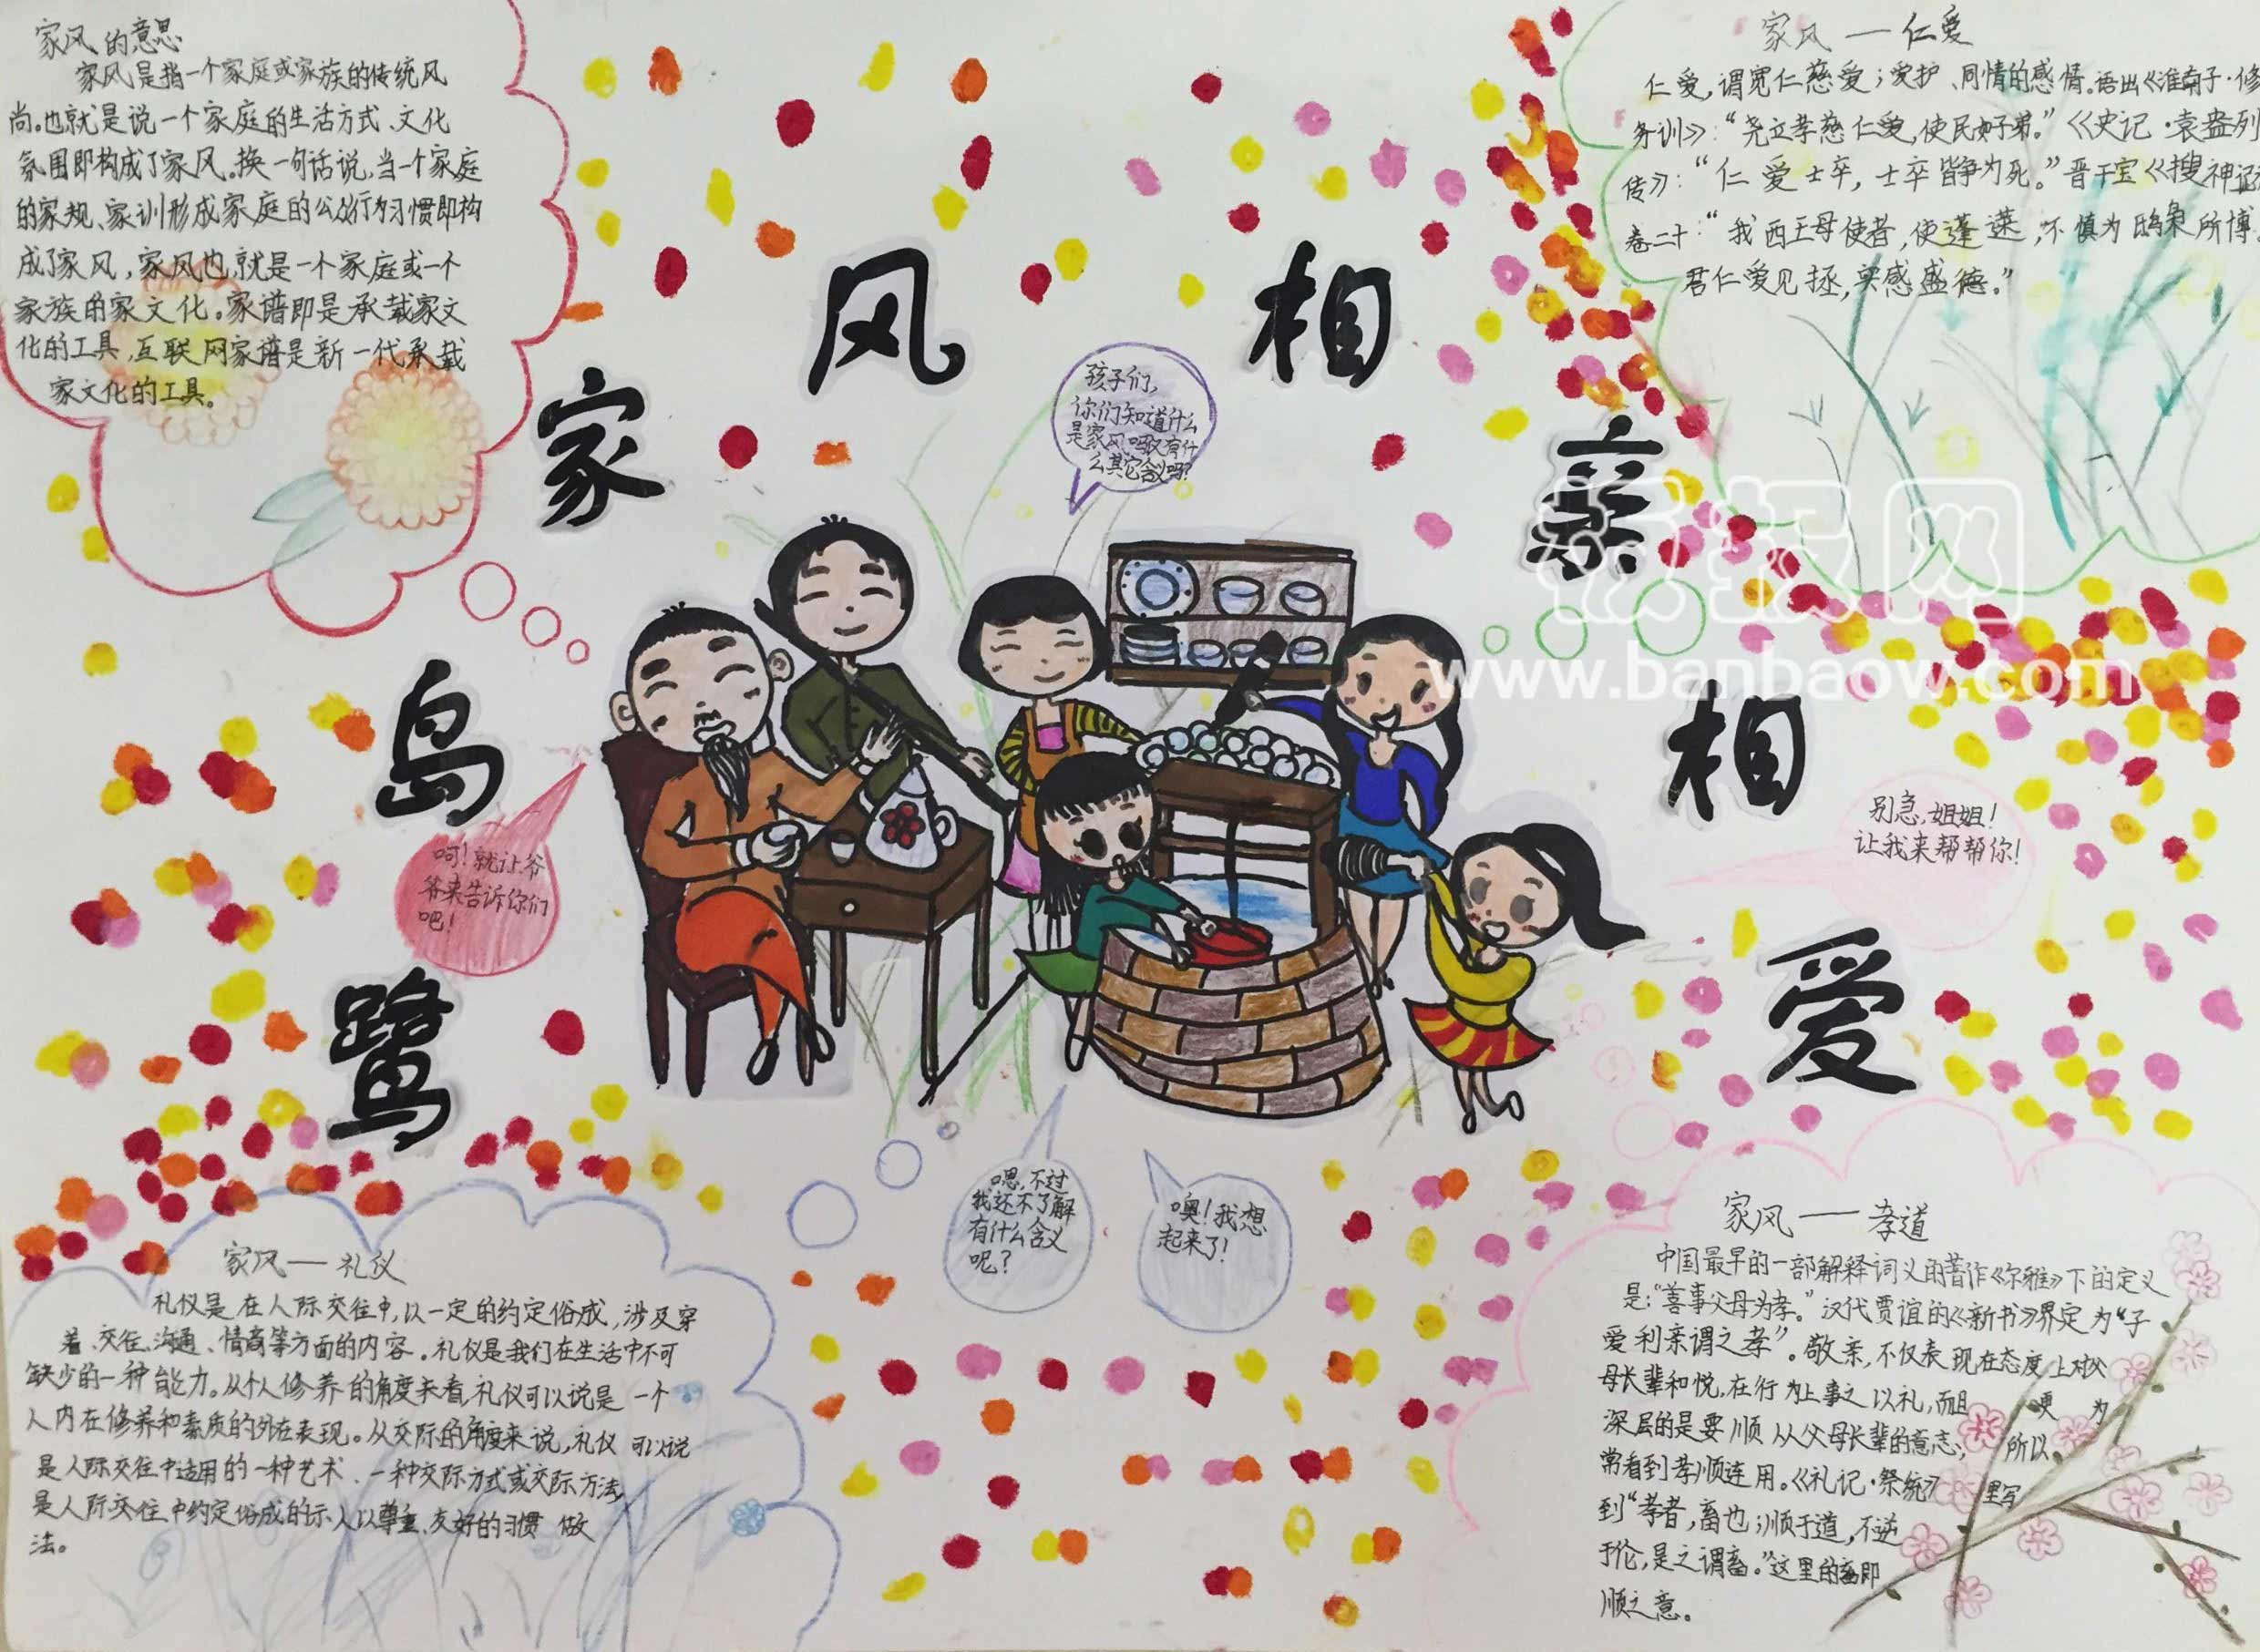 家风的意思
家风是指一个家庭或家族的传统风
尚。也就是说一个家庭的生活方式、文化
氛围即构成了家风。换一句话说,当一个家庭
的家规、家训形成家庭的公众行为习惯即构
成了家风,家风也就是一个家庭或一个
家族的家文化。家谱即是承载家文
化的工具,互联网家谱是新一代承载
家文化的工具。
家风——仁爱
仁爱,谓宽仁慈爱;爱护、同情的感情。语出《淮南子·修
务训》:“尧立孝慈仁爱,使民如子弟。”《史记·袁盎列
传》:“仁爱士卒,士卒皆争为死。”晋干宝《搜神记》
卷二十“我西王母使者,使蓬莱,不慎为鸱枭所博,
君仁爱见拯,实感盛德。”
鹭
岛
家
风
相
亲
相
爱
孩子们,
你们知道什么
是家风吗?又有什
么其它含义吗?
呵!就让爷
爷来告诉你们
吧!
别急,姐姐!
让我来帮帮你!
嗯,不过
我还不了解
有什么含义
呢?
噢!我想
起来了!
板报网
www.banbaow.com
家风——礼仪
礼仪是在人际交往中,以一定的约定俗成,涉及穿
着、交往、沟通、情商等方面的内容。礼仪是我们在生活中不可
缺少的一种能力。从个人修养的角度来看,礼仪可以说是一个
人内在修养和素质的外在表现。从交际的角度来说,礼仪可以说
是人际交往中适用的一种艺术、一种交际方式或交际方法,
是人际交往中约定俗成的示人以尊重、友好的习惯做
法。
家风——孝道
中国最早的一部解释词义的著作《尔雅》下的定义
是:“善事父母为孝。”汉代贾谊的《新书》界定为“子
爱利亲谓之孝”。敬亲,不仅表现在态度上对父
母长辈和悦,在行为上事之以礼,而且更为
深层的是要顺从父母长辈的意志,所以
常看到孝顺连用。《礼记·祭统》里写
到“孝者,畜也;顺于道,不逆
于伦,是之谓畜。”这里的畜即
顺之意。